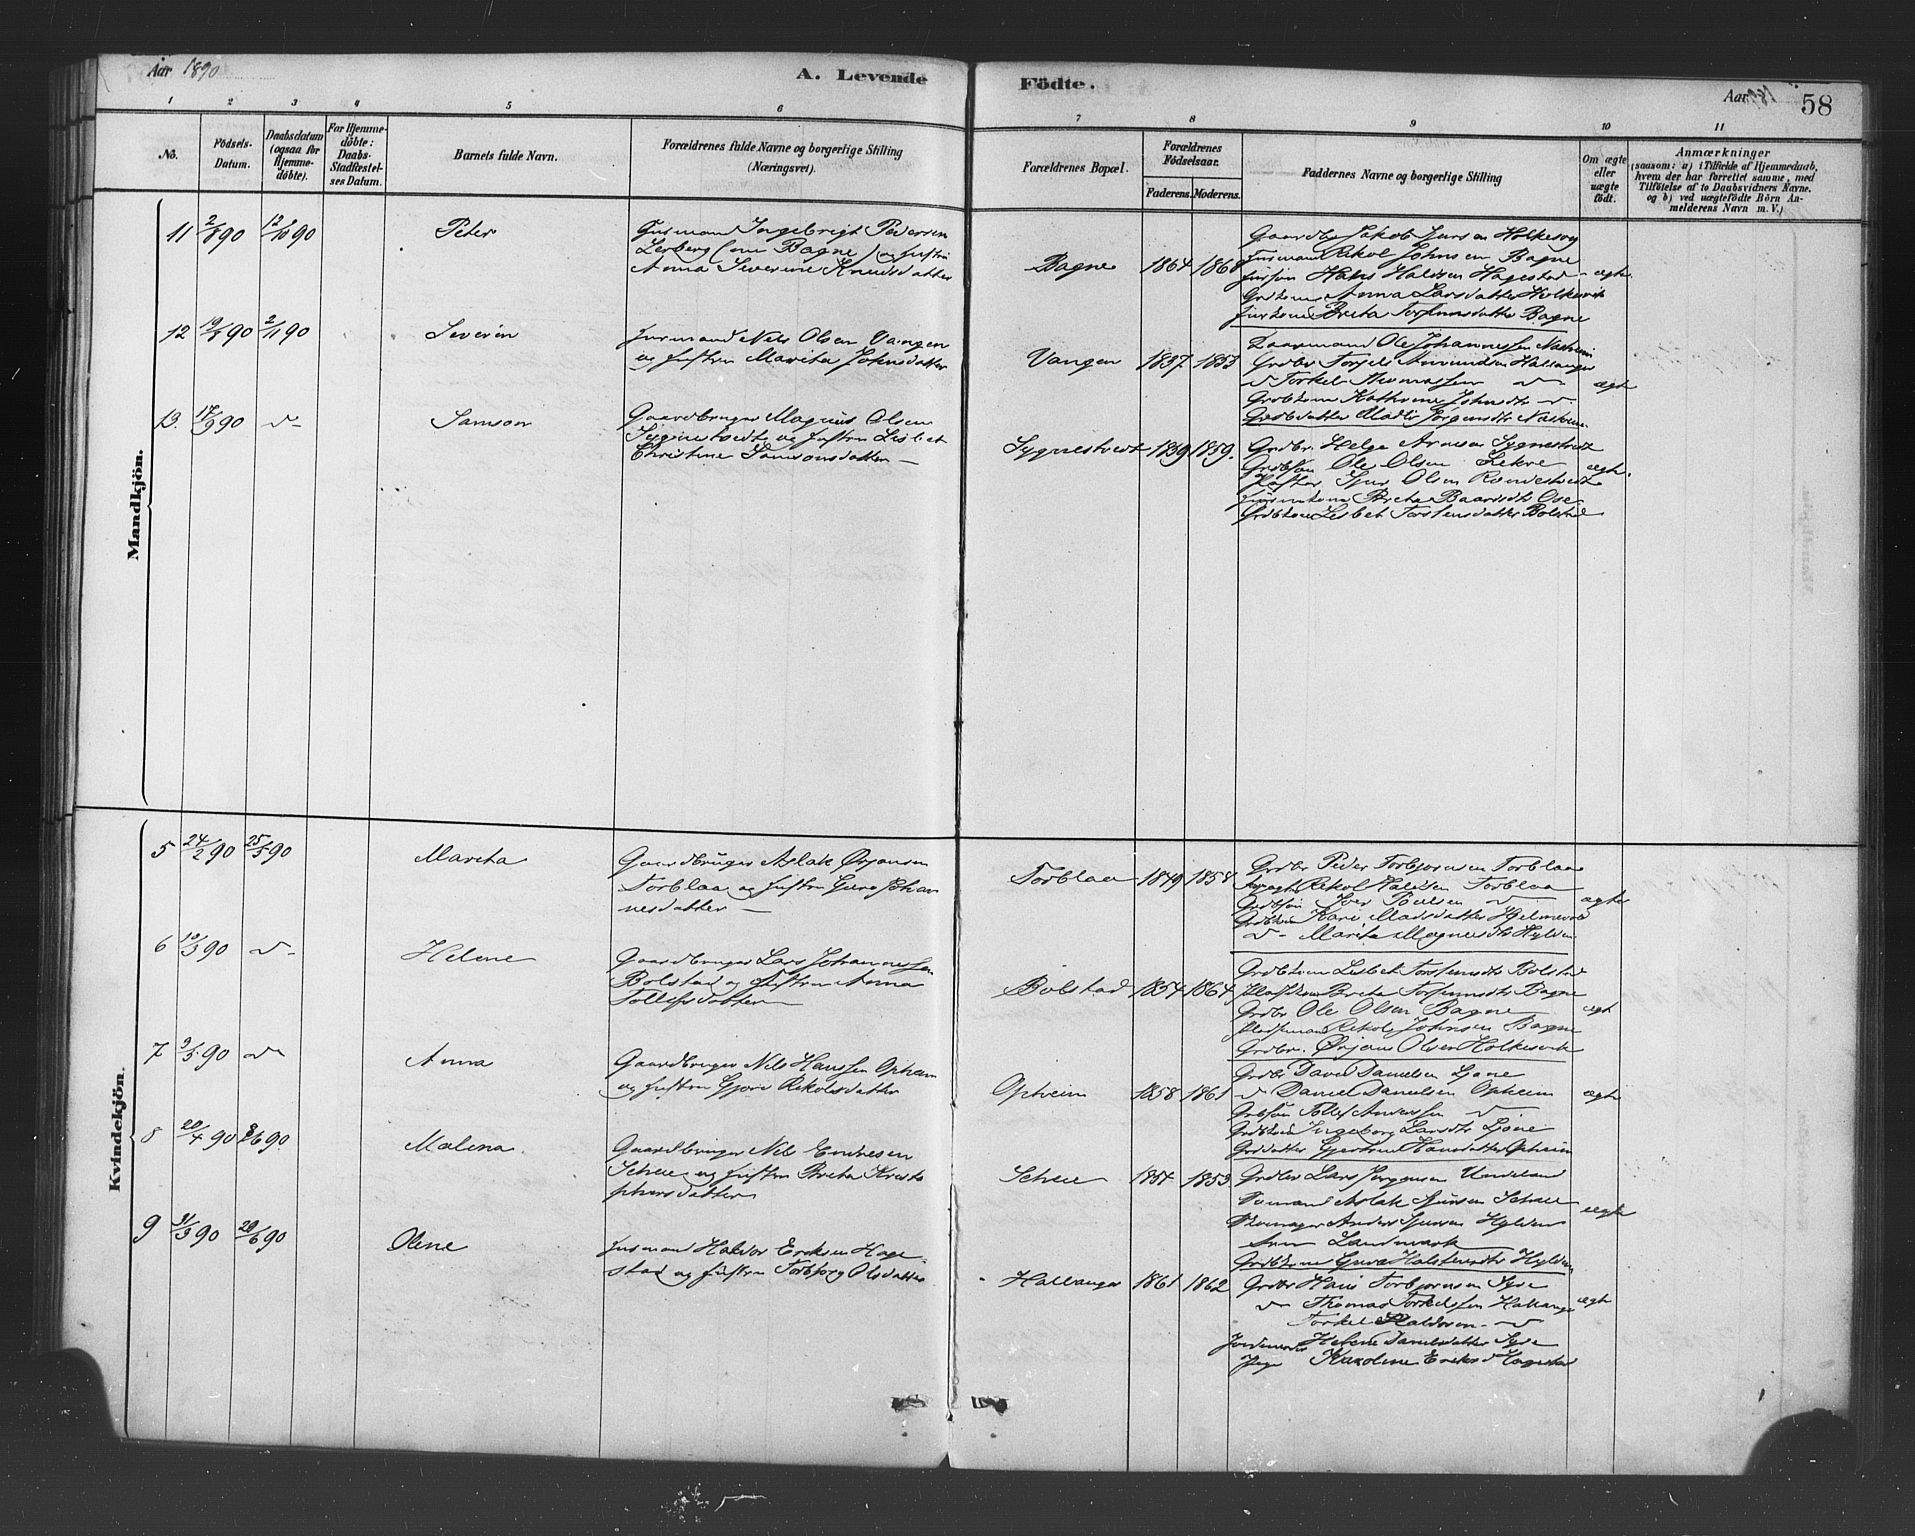 Aar 1890
A. Levende
Födte.
Aar 1890
58
1 2 3 4 5 6 7 8 9 10 11
No.
Födsels-
Datum.
Daabsdatum
(ogsaa for
Hjemme-
döbte).
For Hjemme-
döbte:
Daabs-
Stadfæstel-
ses Datum.
Barnets fulde Navn.
Forældrenes fulde Navne og borgerlige Stilling
(Næringsvei).
Forældrenes Bopæl.
Forældrenes
Födselsaar.
Faderens. Moderens.
Faddernes Navne og borgerlige Stilling
Om ægte
eller
uægte
födt.
Anmærkninger
(saasom: a) i Tilfælde af Hjemmedaab,
hvem der har forrettet samme, med
Tilföielse af to Daabsvidners Navne.
og b) ved uægtefödte Börn An-
melderens Navn m. V.)
Mandkjön.
11 2/8 90 12/10 90
Peter
Husmand Ingebrigt Pedersen
Lerberg (nu Bagne) og Hustru
Anna Severine Knudsdatter
Bagne 1864 1868
Gaardbr Jakob
Rikol Johnsen Bagne
Hans Haldsen Hagestad
Anna Larsdatter
Breta Torfinnsdatter Bagne
ægte
12 19/9 90 2/11 90
Severin
Husmand Nels Olsen Vangen
og Hustru Marita Johnsdatter
Vangen 1837 1853
Ole Johannessen
Grdbr Torjels Amundsen Hallanger
Torkel Thomassen
Grdbkone Kathrine Johnsdtr
ægte
13. 17/9 90
Samson
Gaardbruger Magnus Olsen
Sygnestvedt og Hustru Lisbet
Christine Samsonsdatter
Sygnestvedt 1839 1859.
Grdbr. Helge Arnesen Sygnestvedt
Grdbsøn Ole Olsen Lekve
Sjur Olsen
Breta Baardsdtr Ose
Grdbkone Lisbet Torstensdatter Bolstad
ægte
Kvindekjön.
5 24/2 90 25/5 90
Marita
Gaardbruger Aslak Ørjansen
Torblaa og Hustru Guro Johan
nesdatter
Torblaa 1849 1858
Grdbr Peder Torbjørnsen Torblaa
Rikol Haldsen Torblaa
Grdbsøn Iver
Grdbkone Kari Madsdatter
Marita Magnesdtr Hylden
ægte
6 10/3 90
Helene
Gaardbruger Lars Johannessen
Bolstad og Hustru Anna
Tollefsdatter
Bolstad 1854 1864
Grdbkone Lisbet Torstensdtr Bolstad
Breta Torfinnsdtr Bagne
Grdbr Ole Olsen Bagne
Rikol Johnsen Bagne
Grdbr. Ørjans Olsen Holkesvik
ægt
7 90
Anna
Gaardbruger Nils Hanssen Opheim
og Hustru Gjøri Rikolsdatter
Opheim 1858 1861
Grdbr David Danielsen Ljone
Daniel Danielsen Opheim
Grdbsøn Tollef Anderssen
Grdbkone Ingeborg Larsdtr Ljone
Grddatter Gjertrud Hansdatter Opheim
ægte
8 22/4 90 8/6 90
Malena.
Gaardbruger Nils Endresen
Scheie og Hustru Breta Kristo
phersdatter
Scheie 1854 1853
Grdbr Lars Jørgensen Undeland
Aslak Sjursen Scheie
Anders Sjursen Hylden
Landmark
Grdbkone Guro Halstensdtr Hylden
ægte
9 31/3 90 29/6 90
Olene
Husmand Haldor Eriksen Hage
stad og Hustru Torbjørg Olsdatter
Hallanger 1861 1862
Grdbr Hans Torbjørnsen Syse
Thomas Torkelssen Hallanger
Torkel Haldorsen
Helene Danielsdatter Syse
Pige Karoline Eriksd Hagestad
ægte